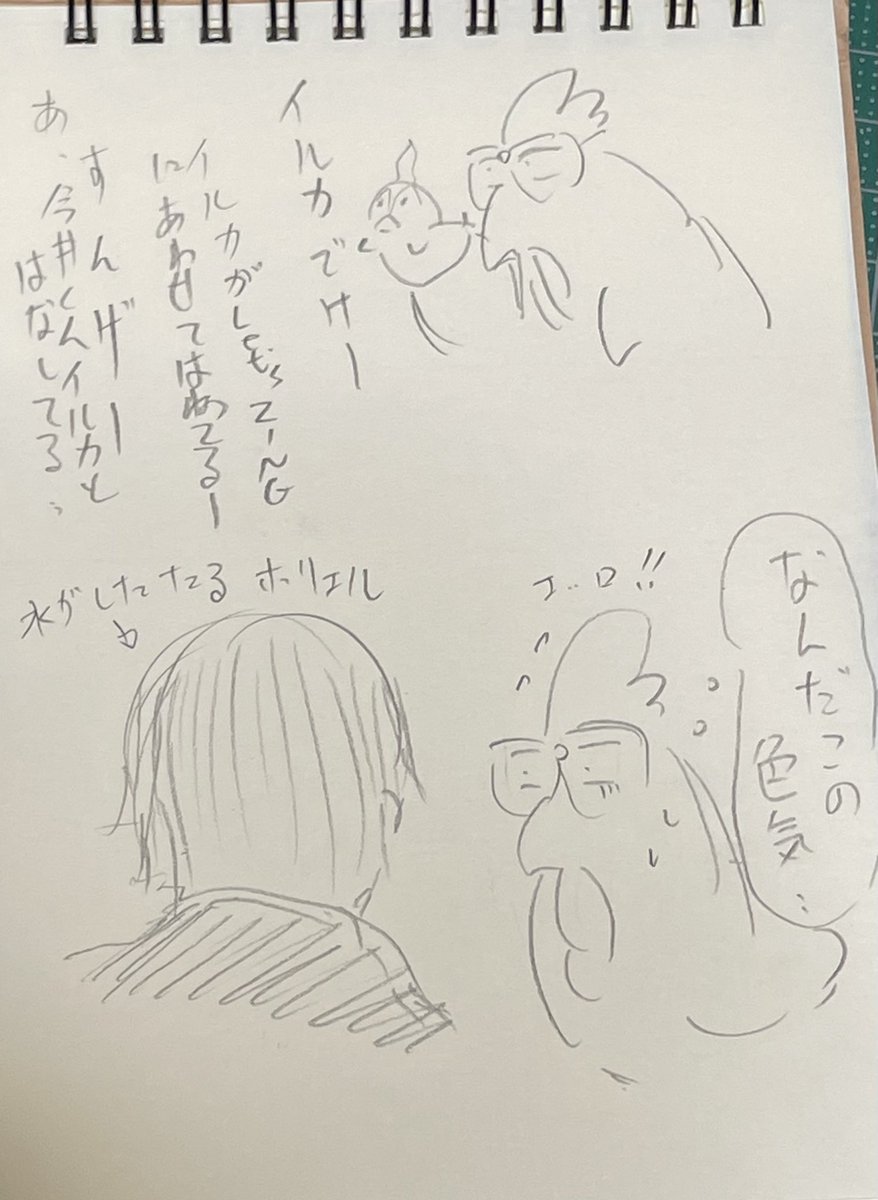 イルカでけー
イルカがしもてーNG
にあわせてはねてるー
すんげー
あ、今井くんイルカと
はなしてる…
なんだこの
色気…
エッロ!!
水がしたたるホリエル